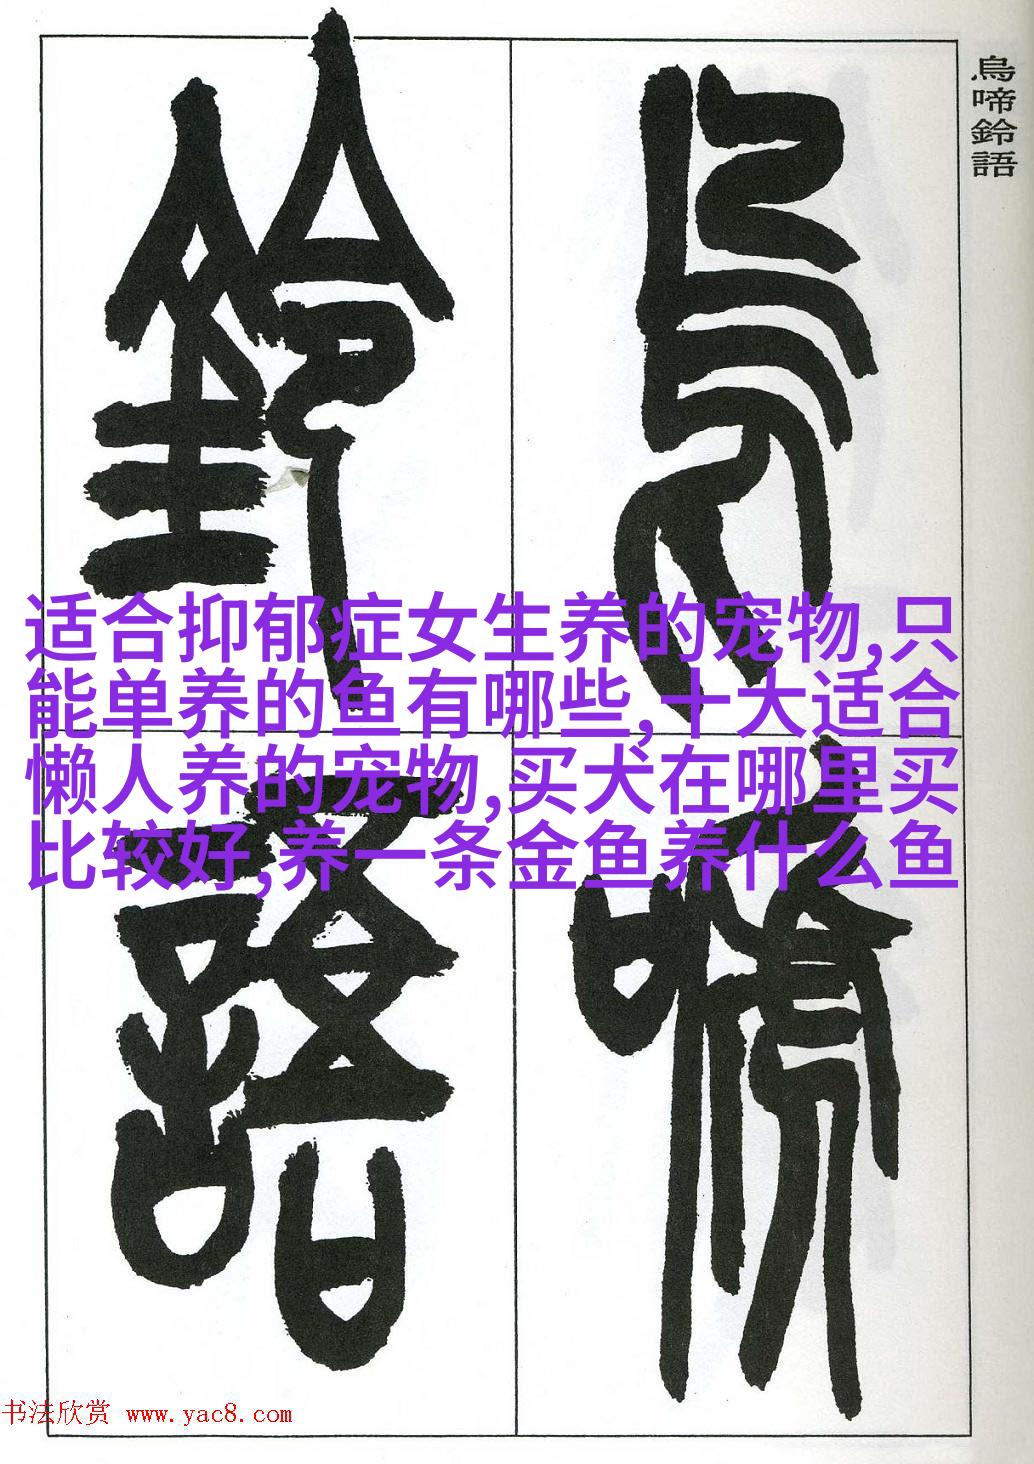 鳥啼鈴語
鳥啼
鈴語
适合抑郁症女生养的宠物,只
能单养的鱼有哪些,十大适合
懒人养的宠物,买犬在哪里买
比较好,养一条金鱼养什么鱼
书法欣赏 www.yac8.com